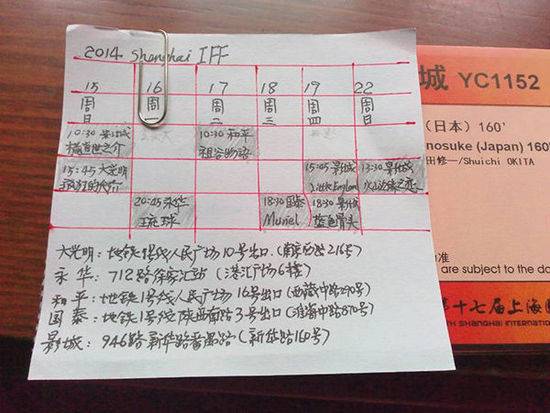 2014 Shanghai IFF
15 16 17 18 19 22
周日 周一 周二 周三 周四 周日
10:30 影城 10:30 和平
横道世之介 祖谷物语
15:45 大光明 15:05 影城 13:30 影城
Little England
20:45 永华 18:30 国泰 18:30 影城
琉球 Muriel 蓝色骨头
大光明: 地铁1号线人民广场10号出口.(南京西路216号)
永华: 712路徐家汇站 (港汇广场6楼)
和平: 地铁1号线人民广场16号出口(西藏中路290号)
国泰: 地铁1号线陕西南路3号出口(淮海中路870号)
影城: 946路新华路番禺路 (新华路160号)
城 YC1152
(日本) 160'
nosuke (Japan) 160'
田修一/Shuichi OKITA
准
are subject to the da
十七届上海国
TH SHANGHAI INTERNATION